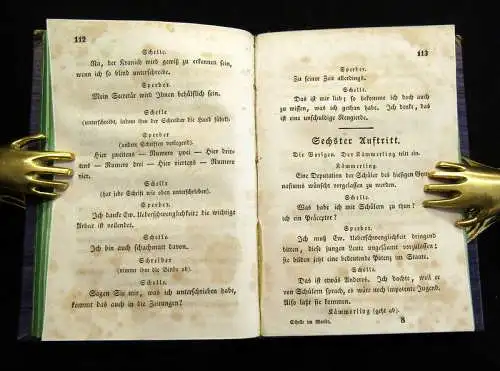 112
Schelle.
Nu, der Kranich wird gewiß zu erkennen sein,
wenn ich so blind unterschreibe.
Sperber.
Mein Secretär wird Ihnen behülflich sein.
Schelle
(unterschreibt, indem ihm der Schreiber die Hand führt).
Sperber
(andere Schriften vorlegend).
Hier zweitens — Numero zwei — Hier drit-
tens — Numero drei — Hier viertens — Numero
vier.
Schelle
(hat jede Schrift wie oben unterschrieben).
Sperber.
Ich danke Ew. Ueberschwenglichkeit; die wichtige
Arbeit ist vollendet.
Schelle.
Ich bin auch schachmatt davon.
Schreiber
(nimmt ihm die Binde ab).
Schelle.
Sagen Sie mir, was ich unterschrieben habe,
kommt das auch in die Zeitungen?
113
Sperber.
Zu seiner Zeit allerdings.
Schelle.
Das ist mir lieb; so bekomme ich doch auch
zu wissen, was ich gethan habe. Ich denke, das ist
eine unschuldige Neugierde.
Sechster Auftritt.
Die Vorigen. Der Kämmerling tritt ein.
Kämmerling.
Eine Deputation der Schüler des hiesigen Gym-
nasiums wünscht vorgelassen zu werden.
Schelle.
Was habe ich mit Schülern zu thun? bin
ich ein Präceptor?
Sperber.
Ich muß Ew. Ueberschwenglichkeit dringend
bitten, diese jungen Leute ungesäumt vorzulassen;
sie bilden jetzt eine bedeutende Potenz im Staate.
Schelle.
Das ist etwas Anderes. Ich dachte, weil er
von Schülern sprach, es wäre noch impotente Jugend.
Also laßt sie kommen.
Kämmerling (geht ab).
Schelle im Monde.
8